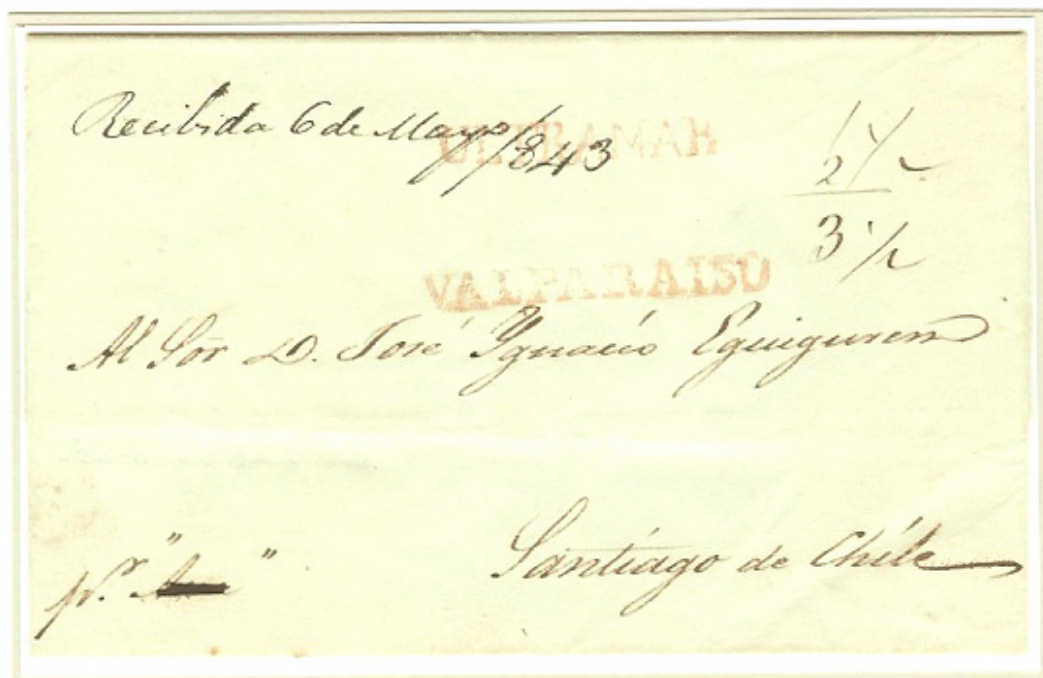 Recibida 6 de Mayo/843
ULTRAMAR
1 1/
2 1/2
3 1/2
VALPARAISO
Al Sor D. José Ygnacio Eguiguren
Santiago de Chile
pr. " "